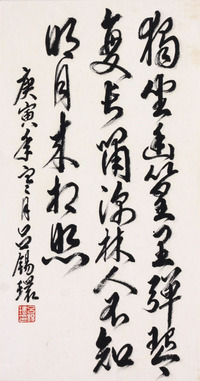 獨坐幽篁里彈琴
復長嘯深林人不知
明月来相照
庚寅年冬月吕錫環